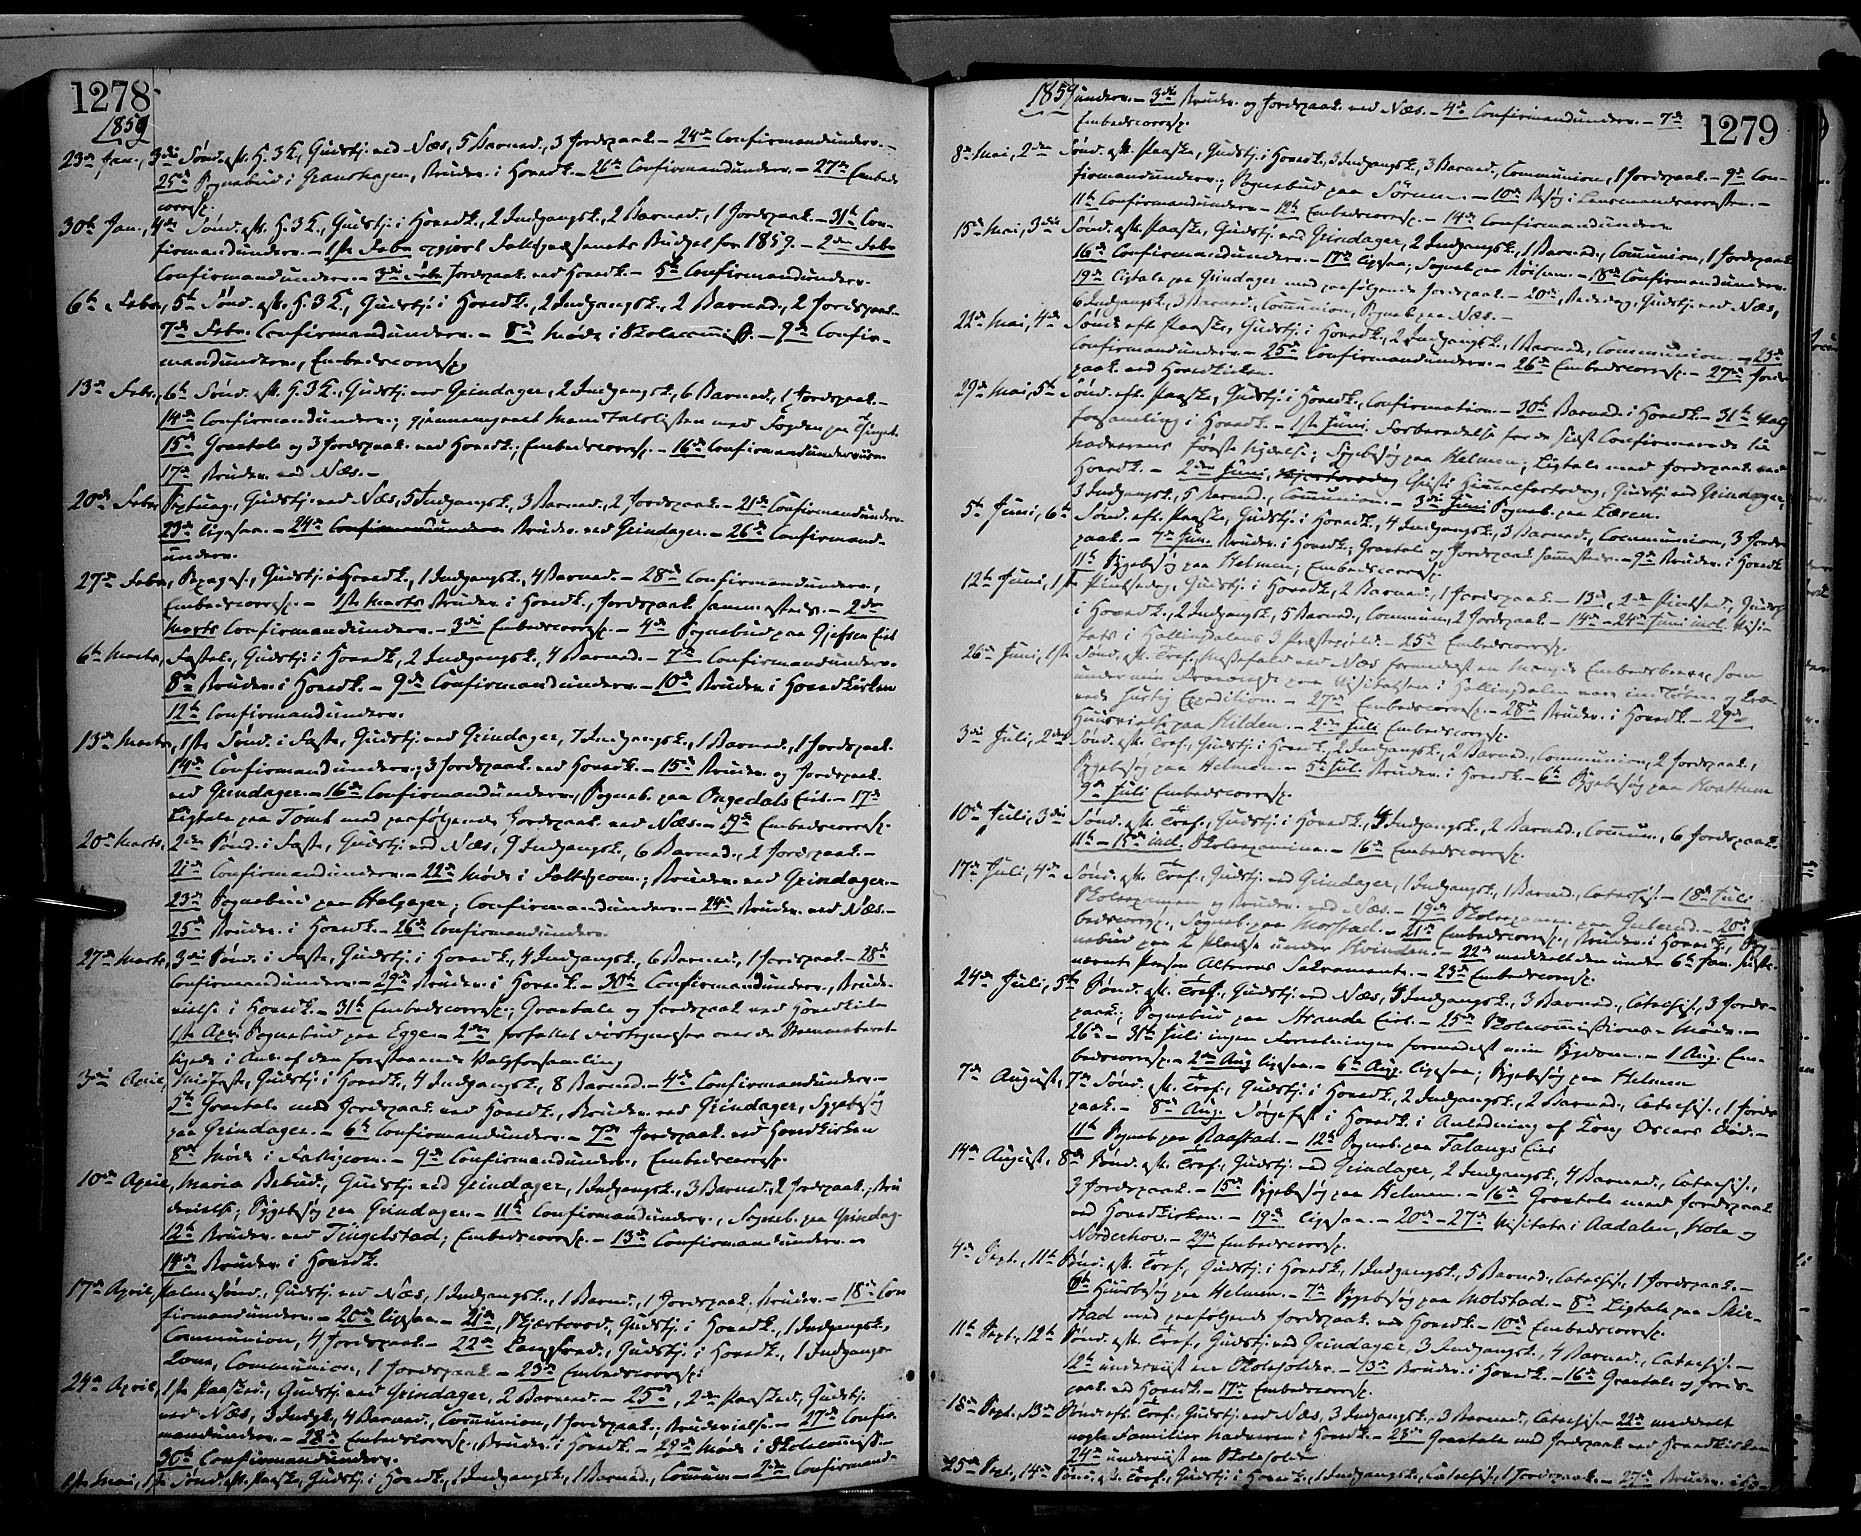 1278
1859
23de Jan., 3die Sønd. eft. H. 3 K., Gudstj. ved Næs, 5 Barnед., 3 Jordspaak. – 24de Confirmandunderv. –
25de Sognebud i Granshagen, Brudev. i Hovedk. – 26de Confirmandunderv. – 27de Embeds
corresp.
30te Jan., 4de Sønd. eft. H. 3 K., Gudstj. i Hovedk., 2 Indgangsk., 2 Barned., 1 Jordspaak. – 31te Con-
firmandunderv. – 1ste Febr. opgjort Fattigvæsenets Budget for 1859. – 2den Febr
Confirmandunderv. – 3die Febr. Jordspaak. ved Hovedk. – 5te Confirmandunderv.
6te Febr., 5te Sønd. eft. H. 3 K., Gudstj. i Hovedk., 2 Indgangsk., 2 Barned., 2 Jordspaak.
7de Febr. Confirmandunderv. – 8de Møde i Skolecommiss. – 9de Confir-
mandunderv., Embedscorresp.
13de Febr., 6te Sønd. eft. H. 3 K., Gudstj. ved Grindager, 2 Indgangsk., 6 Barned., 1 Jordspaak. –
14de Confirmandunderv.; gjennemgaaet Mandtalslisten med Fogden paa Thinget.
15de Gravtale og 3 Jordspaak. ved Hovedk.; Embedscorresp. – 16de Confirmandunderviisn.
17de Brudev. ved Næs. –
20de Febr. Septuag., Gudstj. ved Næs, 5 Indgangsk., 3 Barned., 2 Jordspaak. – 21de Confirmandunderv.
23de Ligpsaa. – 24de Confirmandunderv. Brudev. ved Grindager. – 26de Confirmand-
underv.
27de Febr., Sexages., Gudstj. i Hovedk., 1 Indgangsk., 4 Barned. – 28de Confirmandunderv.,
Embedscorresp. – 1ste Marts Brudev. i Hovedk., Jordspaak. samme steds. – 2den
Marts Confirmandunderv. – 3die Embedscorresp. – 4de Sognebud paa Gjefsen Eie
6te Marts, Fastel., Gudstj. i Hovedk., 2 Indgangsk., 4 Barned. – 7de Confirmandunderv.
8de Brudev. i Hovedk. – 9de Confirmandunderv. – 10de Brudev. i Hovedkirken
12te Confirmandunderv.
13de Marts, 1ste Sønd. i Faste, Gudstj. ved Grindager, 7 Indgangsk., 1 Barned., 1 Jordspaak.
14de Confirmandunderv.; 3 Jordspaak. ved Hovedk. – 15de Brudev. og Jordspaak.
ved Grindager. – 16de Confirmandunderv., Sogneb. paa Ongedals Eie. – 17de
Ligtale paa Tømt med paafølgende Jordspaak. ved Næs. – 19de Embedscorresp.
20de Marts, 2den Sønd. i Faste, Gudstj. ved Næs, 9 Indgangsk., 6 Barned., 2 Jordspaak. –
21de Confirmandunderv. – 22de Møde i Fattigcom.; Brudev. ved Grindager. –
23de Sognebud paa Helgager; Confirmandunderv. – 24de Brudev. ved Næs. –
25de Brudev. i Hovedk. – 26de Confirmandunderv.
27de Marts, 3die Sønd. i Faste, Gudstj. i Hovedk., 4 Indgangsk., 6 Barned., 1 Jordspaak. – 28de
Confirmandunderv. – 29de Brudev. i Hovedk. – 30te Confirmandunderv., Brude-
vielse i Hovedk. – 31te Embedscorresp.; Gravtale og Jordspaak. ved Hovedkirk.
1ste Apr. Sognebud paa Egge. – 2den forfattet Fortegnelse over de Stemmeberet-
tigede i Anl. af den forestaaende Valgforsamling
3die April, Midfaste, Gudstj. i Hovedk., 4 Indgangsk., 8 Barned. – 4de Confirmandunderv. –
5te Gravtale med Jordspaak. ved Hovedk., Brudev. ved Grindager, Sygebesøg
paa Grindager. – 6te Confirmandunderv. – 7de Jordspaak. ved Hovedkirken
8de Møde i Fattigcom. – 9de Confirmandunderv., Embedscorresp.
10de April, Maria Bebud., Gudstj. ved Grindager, 1 Indgangsk., 3 Barned., 2 Jordspaak., Bru
devielse; Sygebesøg paa Grindager. – 11te Confirmandunderv., Sogneb. paa Grindag.
12te Brudev. ved Tingelstad; Embedscorresp. – 13de Confirmandunderv. –
14de Brudev. i Hovedk.
17de April, Palmesønd., Gudstj. ved Næs, 1 Indgangsk., 1 Barned., 1 Jordspaak. Brudev. – 18de Con
firmandunderv. – 20de Ligpsaa. – 21de, Skjærtorsd., Gudstj. i Hovedk., 1 Indgangsk.,
Communion, 4 Jordspaak. – 22de Langfred., Gudstj. i Hovedk., 1 Indgangs-
kone, Communion, 1 Jordspaak. – 23de Embedscorresp.
24de April, 1ste Paasked., Gudstj. ved Grindager, 2 Barned. – 25de, 2den Paasked., Gudstj.
ved Næs, 3 Indgk., 4 Barned., Communion, 1 Jordspaak., Brudevielse. – 27de Confir-
mandunderv. – 28de Embedscorresp., Brudev. i Hovedk. – 29de Møde i Skolecommiss. –
30te Confirmandunderv.
1ste Mai, 1ste Sønd. eft. Paaske, Gudstj. i Hovedk., 1 Indgangsk., 1 Barned., Commun. – 2den Confirmand-
1859
1279
underv. – 3die Brudev. og Jordspaak. ved Næs. – 4de Confirmandunderv. – 7de
Embedscorresp.
8de Mai, 2den Sønd. eft. Paaske, Gudstj. i Hovedk., 3 Indgangsk., 3 Barned., Communion, 1 Jordspaak. – 9de Con-
firmandunderv.; Sognebud paa Sørum. – 10de Besøg i Lensmandsarresten. –
11te Confirmandunderv. – 12te Embedscorresp. – 14de Confirmandunderv.
15de Mai, 3die Sønd. eft. Paaske, Gudstj. ved Grindager, 2 Indgangsk., 1 Barned., Communion, 1 Jordspaak.
16de Confirmandunderv. – 17de Ligpsaa; Sogneb. paa Røisum. – 18de Confirmandunderv.
19de Ligtale paa Grindager med paafølgende Jordspaak. – 20de, Bededag, Gudstj. ved Næs,
6 Indgangsk., 3 Barned., Communion, Sogneb. paa Næs. –
22de Mai, 4de Sønd. eft. Paaske, Gudstj. i Hovedk., 2 Indgangsk., 1 Barned., Communion. – 23de
Confirmandunderv. – 25de Confirmandunderv. – 26de Embedscorresp. – 27de Jords-
paak. ved Hovedkirken.
29de Mai, 5te Sønd. eft. Paaske, Gudstj. i Hovedk., Confirmation. – 30te Barned. i Hovedk. – 31te Valg
forsamling i Hovedk. – 1ste Juni Forberedelse for de sidst Confirmerede til
Nadverens første Nydelse; Sygebesøg paa Helmen; Ligtale med Jordspaak. ved
Hovedk. – 2den Juni, Christi Himmelfartsdag, Gudstj. ved Grindager,
3 Indgangsk., 5 Barned., Communion. – 3die Juni Sogneb. paa Læren.
5te Juni, 6te Sønd. eft. Paaske, Gudstj. i Hovedk., 4 Indgangsk., 3 Barned., Communion, 3 Jords-
paak. – 7de Jun. Brudev. i Hovedk.; Gravtale og Jordspaak. sammesteds. – 9de Brudev. i Hovedk
11te Sygebesøg paa Helmen; Embedscorresp.
12te Juni, 1ste Pintsedag, Gudstj. i Hovedk., 2 Barned., 1 Jordspaak. – 13de, 2den Pintsed., Gudstj.
i Hovedk., 2 Indgangsk., 5 Barned., Commun., 2 Jordspaak. – 14de–24de Juni incl. Visi-
tats i Hallingdalens 3 Præstegjeld. – 25de Embedscorresp.
26de Juni, 1ste Sønd. eft. Tref. Messefald ved Næs formedelst en Mængde Embedsbreve, som
under min Fraværelse paa Visitatsen i Hallingdalen vare indløbne og kræ-
vede hurtig Expedition. – 27de Embedscorresp. – 28de Brudev. i Hovedk. – 29de
Huusvielse paa Hilden. – 2den Juli Embedscorresp.
3die Juli, 2den Sønd. eft. Tref., Gudstj. i Hovedk., 2 Indgangsk., 2 Barned., Communion, 2 Jordspaak.,
Sygebesøg paa Helmen. – 5te Juli Brudev. i Hovedk. – 6te Sygebesøg paa Hvattum
9de Juli Embedscorresp.
10de Juli, 3die Sønd. eft. Tref., Gudstj. i Hovedk., 4 Indgangsk., 2 Barned., Commun., 6 Jordspaak.
11te – 15de incl. Skoleexamina. – 16de Embedscorresp.
17de Juli, 4de Sønd. eft. Tref., Gudstj. ved Grindager, 1 Indgangsk., 1 Barned., Catechis. – 18de Juli
Skoleexamen og Brudev. ved Næs. – 19de Skoleexamen paa Gulerud. – 20de
bedscorresp., Sogneb. paa Morstad. – 21de Embedscorresp., Brudev. i Hovedk., Sog-
nebud paa 2 Pladse under Hvinden. – 22de meddeelt den under 6te Jan. sidst-
nævnte Person Alterens Sakramente. – 23de Embedscorresp.
24de Juli, 5te Sønd. eft. Tref., Gudstj. ved Næs, 4 Indgangsk., 3 Barned., Catechis., 3 Jords-
paak., Sognebud paa Strande Eie. – 25de Skolecommissions-Møde. –
26de – 31te Juli ingen Forretninger formedelst min Sygdom. – 1 Aug. Em-
bedscorresp. – 2den Aug Ligpsaa. – 6te Aug. Ligpsaa; Sygebesøg paa Helmen
7de August, 7de Sønd. eft. Tref., Gudstj. i Hovedk., 2 Indgangsk., 2 Barned., Catechis., 1 Jords-
paak. – 8de Aug. Sørgefest i Hovedk. i Anledning af Kong Oscars Død. –
11te Sogneb. paa Raastad. – 12te Sogneb. paa Falangs Eie
14de August, 8de Sønd. eft. Tref., Gudstj. ved Grindager, 2 Indgangsk., 4 Barned., Catechis.,
3 Jordspaak. – 15de Sygebesøg paa Helmen. – 16de Gravtale med Jordspaak.
ved Hovedkirken. – 19de Ligpsaa. – 20de – 27de Visitats i Aadalen, Hole og
Norderhov. – 29de Embedscorresp.
4de Sept., 11te Sønd. eft. Tref., Gudstj. i Hovedk., 1 Indgangsk., 5 Barned., Catechis., 1 Jordspaak. –
6te Huusbesøg paa Helmen. – 7de Sygebesøg paa Molstad. – 8de Ligtale paa Skir-
stad med paafølgende Jordspaak. ved Hovedk. – 10de Embedscorresp.
11te Sept., 12te Sønd. eft. Tref., Gudstj. ved Grindager, 3 Indgangsk., 4 Barned., Catechis. –
12te underviist en Skoleholder. – 13de Brudev. i Hovedk. – 16de Gravtale og Jords-
paak. ved Hovedk. – 17de Embedscorresp.
18de Sept., 13de Sønd. eft. Tref., Gudstj. ved Næs, 3 Indgangsk., 3 Barned., Catechis. – 22de meddeelt
nogle Familier Nadveren i Hovedk. – 23de Gravtale med Jordspaak. ved Hovedkirken
24de underviist en Skoleholder
25de Sept., 14de Sønd. eft. Tref., Gudstj. i Hovedk., 1 Indgangsk., Catechis., 1 Jordspaak. – 27de Brudev. i Hov-